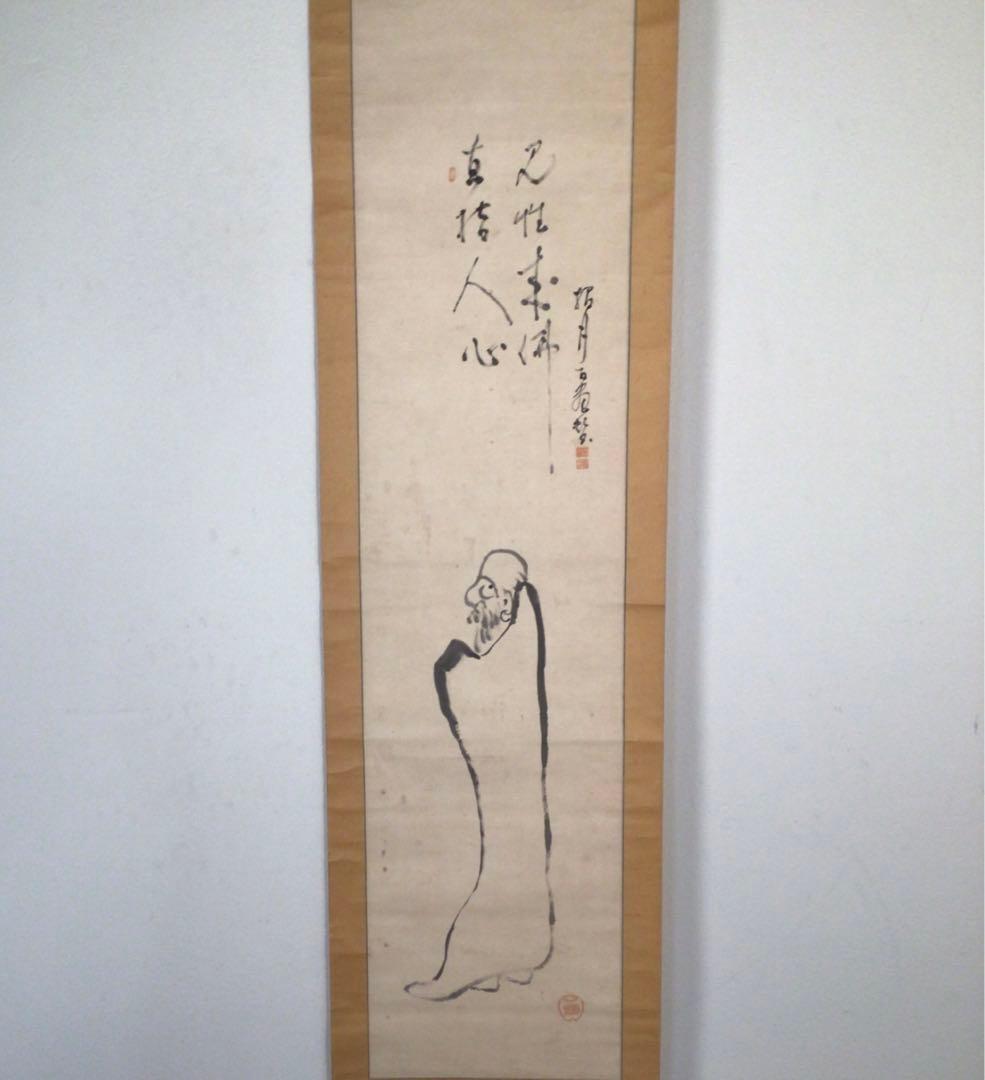 直指人心
見性成佛
指月